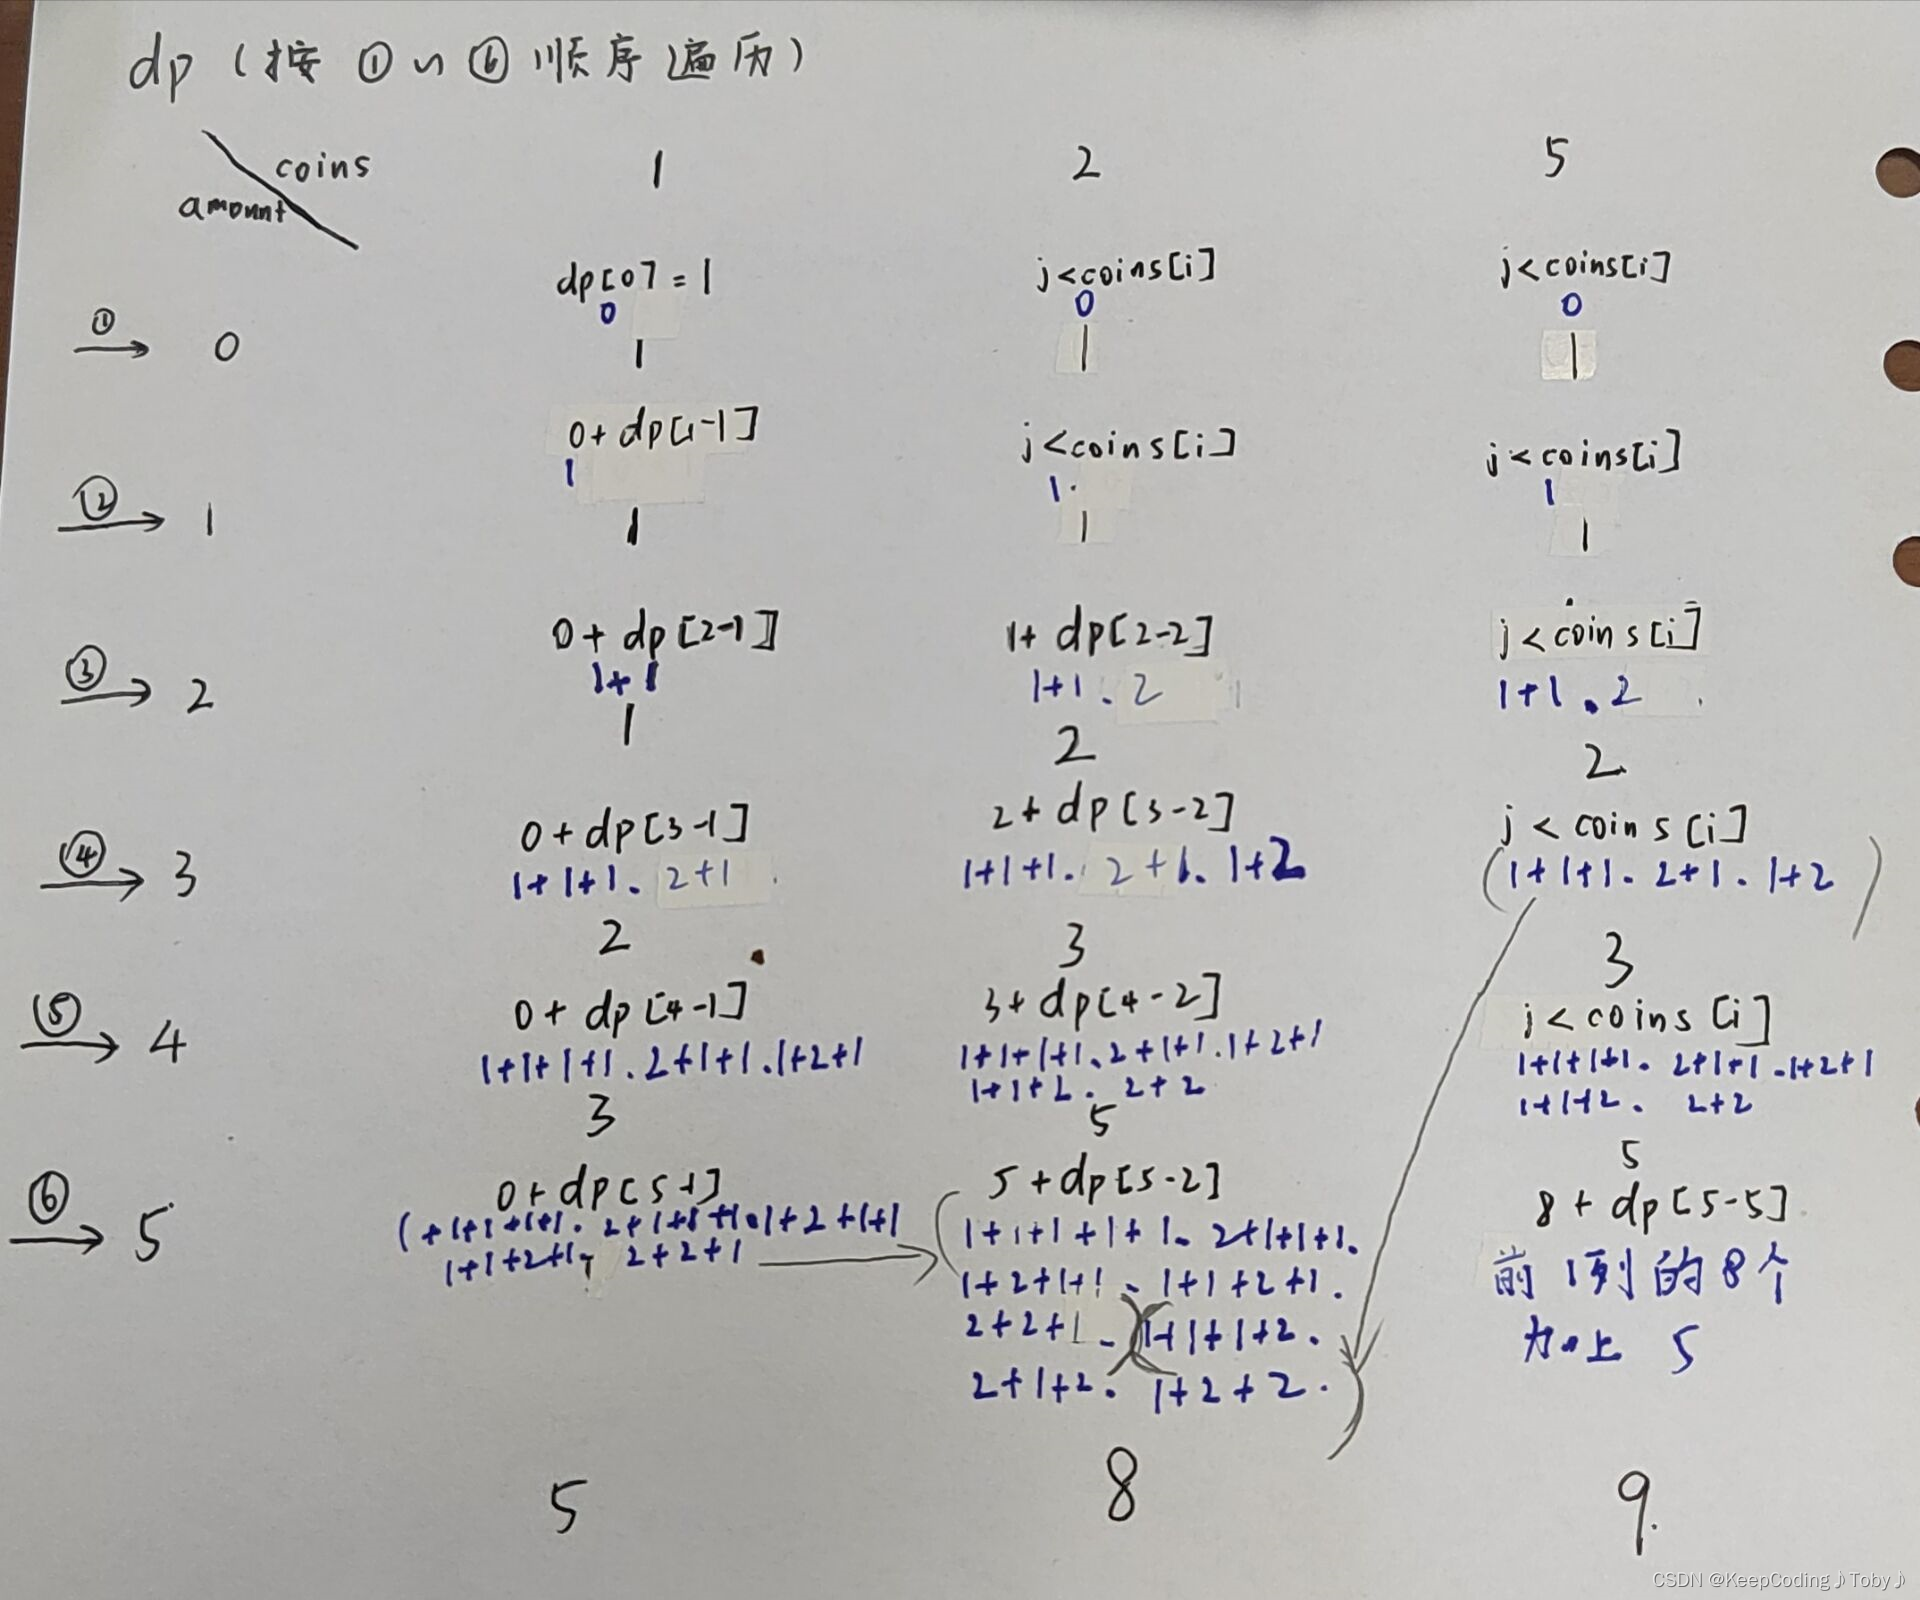 dp (按 ① ~ ⑥ 顺序遍历)
coins 1 2 5
amount
dp[0] = 1 j<coins[i] j<coins[i]
0 0 0
① → 0 1 1 1
0+ dp[1-1] j<coins[i] j<coins[i]
1 1. 1
② → 1 1 1 1
0+ dp[2-1] 1+ dp[2-2] j<coins[i]
③ → 2 1+1 1+1 . 2 1+1 . 2
1 2 2
0+dp[3-1] 2+dp[3-2] j<coins[i]
④ → 3 1+1+1. 2+1 1+1+1. 2+1. 1+2 (1+1+1. 2+1. 1+2)
2 3 3
0+ dp[4-1] 3+dp[4-2] j<coins[i]
⑤ → 4 1+1+1+1. 2+1+1. 1+2+1 1+1+1+1. 2+1+1. 1+2+1 1+1+1+1. 2+1+1. 1+2+1
1+1+2. 2+2 1+1+2. 2+2
3 5 5
0+dp[5-1] 5+dp[5-2] 8+dp[5-5]
⑥ → 5 (1+1+1+1+1. 2+1+1+1. 1+2+1+1 (1+1+1+1+1. 2+1+1+1. 前1列的8个
1+1+2+1. 2+2+1 → 1+2+1+1. 1+1+2+1. 加上 5
2+2+1.) (1+1+1+2.
2+1+2. 1+2+2. )
5 8 9.
CSDN @KeepCoding♪Toby♪